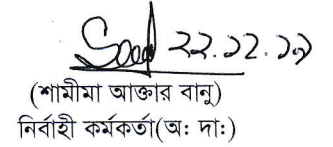 ২২.১২.১৯
(শামীমা আক্তার বানু)
নির্বাহী কর্মকর্তা(অ: দা:)